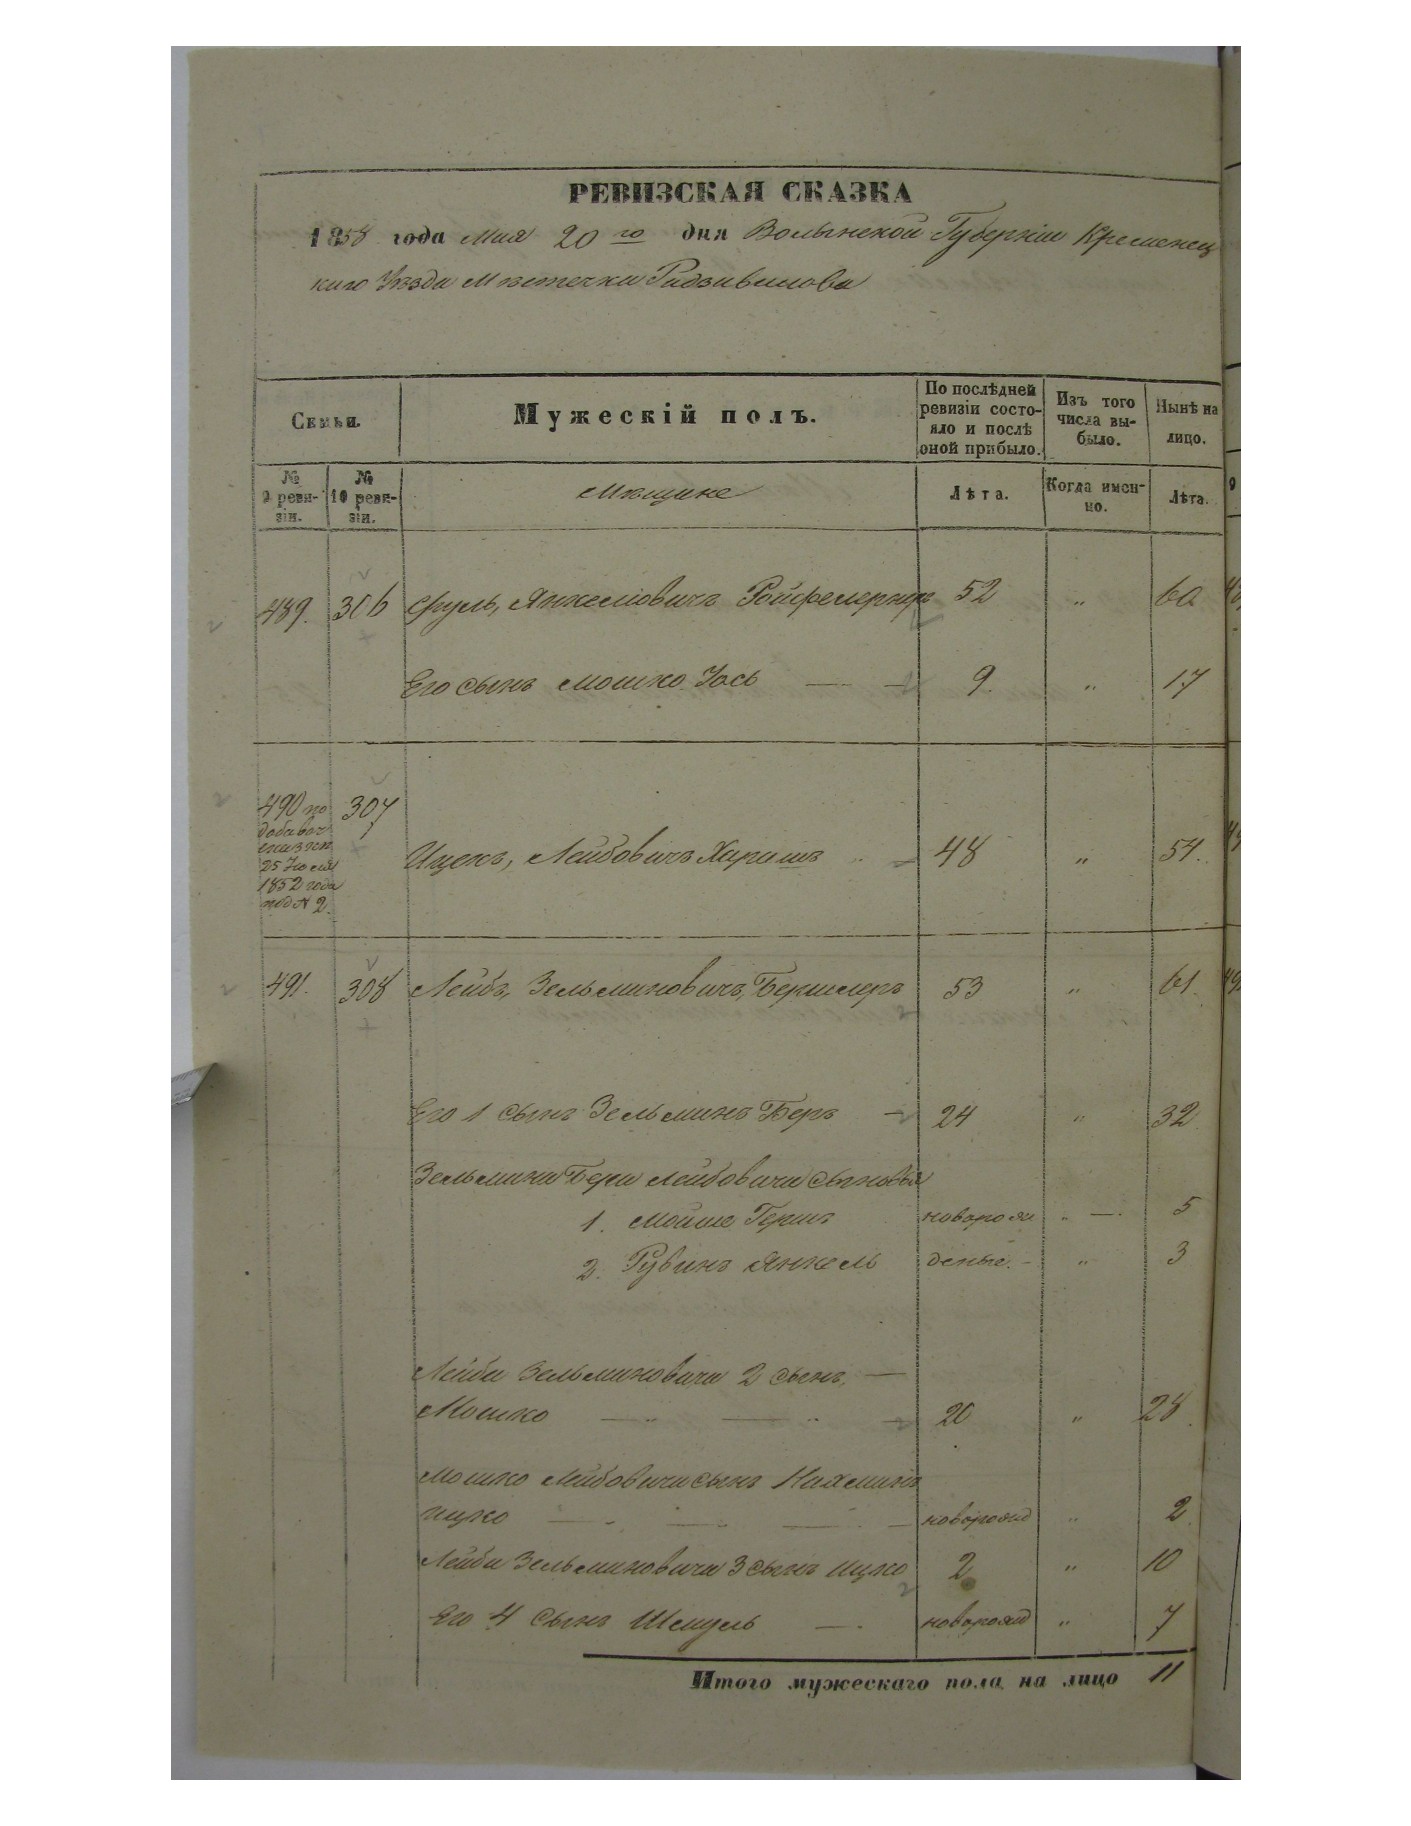 РЕВИЗСКАЯ СКАЗКА
1858 года Мая 20го дня Волынской Губернiи Кременец
каго Уѣзда Мѣстечка Радзивилова
Семьи.
Мужескій полъ.
По послѣдней ревизіи состояло и послѣ оной прибыло.
Изъ того числа выбыло.
Нынѣ на лицо.
№ 9 ревизіи.
№ 10 ревизіи.
Мѣщане
Лѣта.
Когда именно.
Лѣта.
489. 306 Сруль, Янкелiовичъ 52 „ 60
Его сынъ Мошко Іось — — 9. „ 17
490 по 307
добавоч
25 Іюля
1852 года
под № 2.
Ицекъ, Лейбовичъ 48 „ 54.
491. 308 Лейба, Зельмановичъ, 53 „ 61.
Его 1 сынъ Зельманъ Беръ — 24 „ 32
Зельмана Бера Лейбовича сыновья
1. Мойше Гершъ новорож „ — . 5
2. Рувинъ Янкель денные. — „ 3
Лейби Зельмановича 2 сынъ, —
Мошко — „ — „ — 20 „ 28
Мошко Лейбовича сынъ Нахманъ
Ицко — „ — „ — . — новорожд „ 2
Лейби Зельмановича 3 сынъ Ицко 2 „ 10
Его 4 сынъ Шмуль — . новорожд „ 7
Итого мужескаго пола на лицо 11